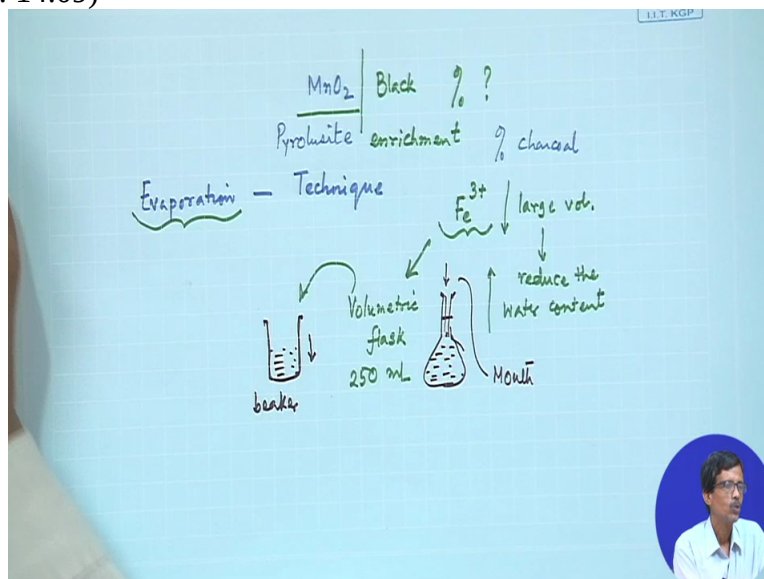 14:05)
I.I.T. KGP
MnO2 | Black % ?
Pyrolusite enrichment % charcoal
Evaporation – Technique
Fe3+ large vol.
reduce the
water content
Volumetric
flask
250 mL
Mouth
beaker